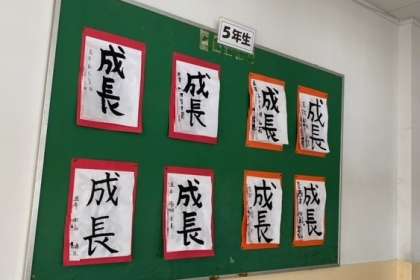 5年生
成長
成長
成長
成長
成長
成長
成長
成長